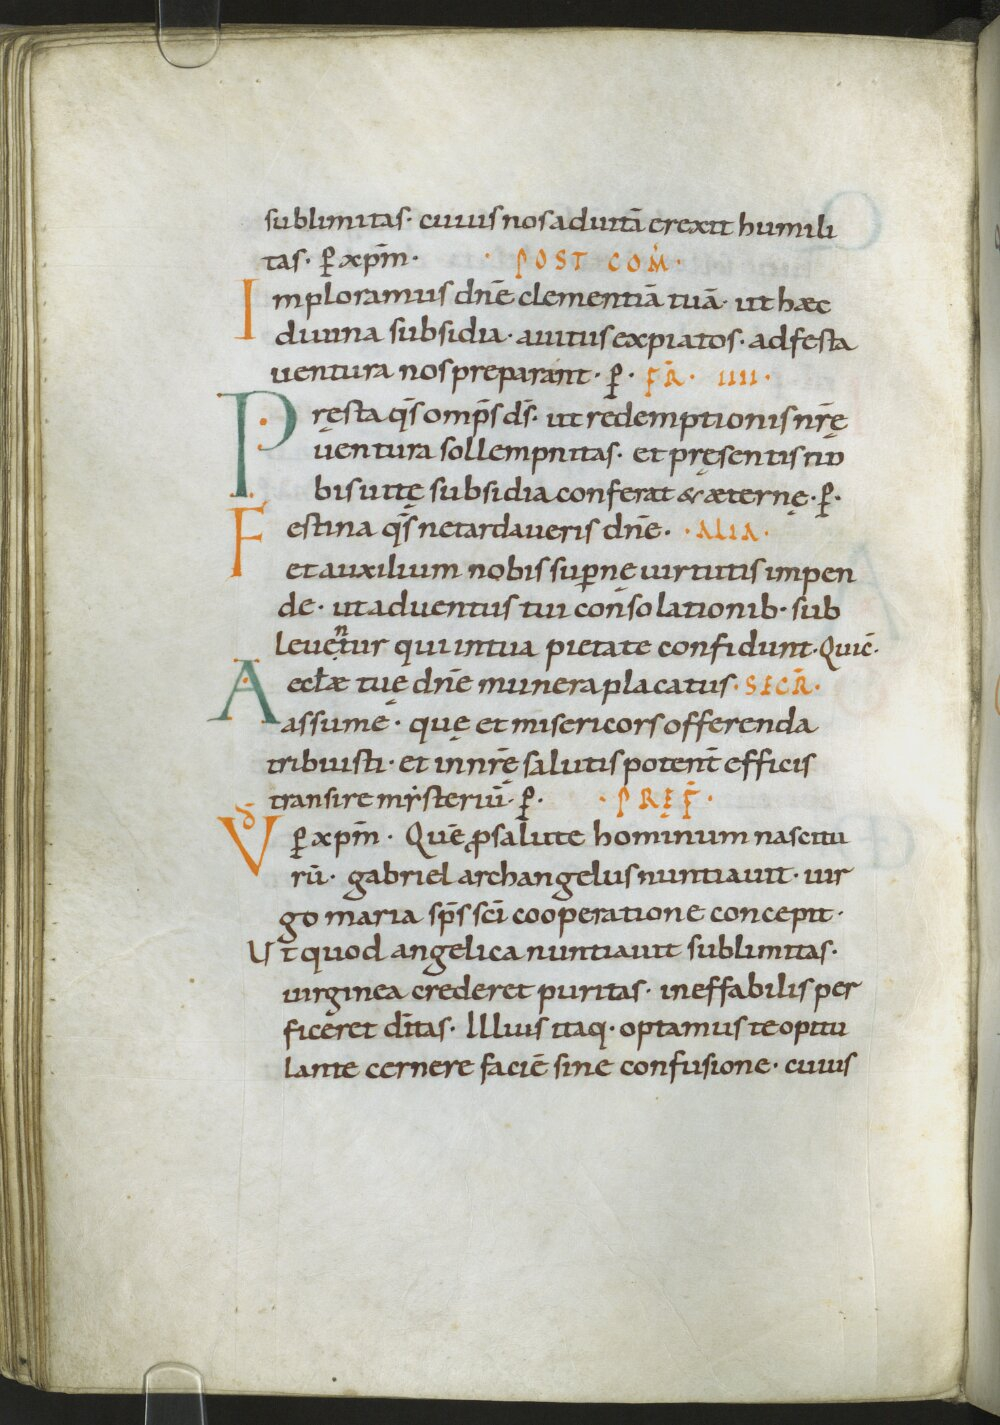 sublimitas· cuius nos ad uitā erexit humili
tas· p̲ xp̄m· · POST COM̄·
Imploramus dn̄e clementiā tuā· ut hæc
diuina subsidia· auitiis expiatos· ad festa
uentura nos preparant· p̲· FR̄· IIII·
Pręsta qs̄ omp̄s ds̄· ut redemptionis nr̄ę
uentura sollempnitas· et pręsentis nob
bis uitę subsidia conferat & æternę· p̲·
Festina qs̄ ne tardaueris dn̄e· ·ALIA·
et auxilium nobis sup̲nę uirtutis impen
de· ut aduentus tui consolationib· sub
leuentur qui in tua pietate confidunt· Qui c̄·
Aeccłæ tuę dn̄e munera placatus· SECR̄·
assume· quę et misericors offerenda
tribuisti· et in nr̄ę salutis potent̄ efficis
transire mẏsteriū· p̲· · PREF̄·
VD p̲ xp̄m· Quē ꝓ salute hominum nascitu
rū· gabriel archangelus nuntiauit· uir
go maria sp̄s sc̄i cooperatione concepit·
Ut quod angelica nuntiauit sublimitas·
uirginea crederet puritas· ineffabilis per
ficeret dīitas· Illius itaq· optamus te opitu
lante cernere faciē sine confusione· cuius